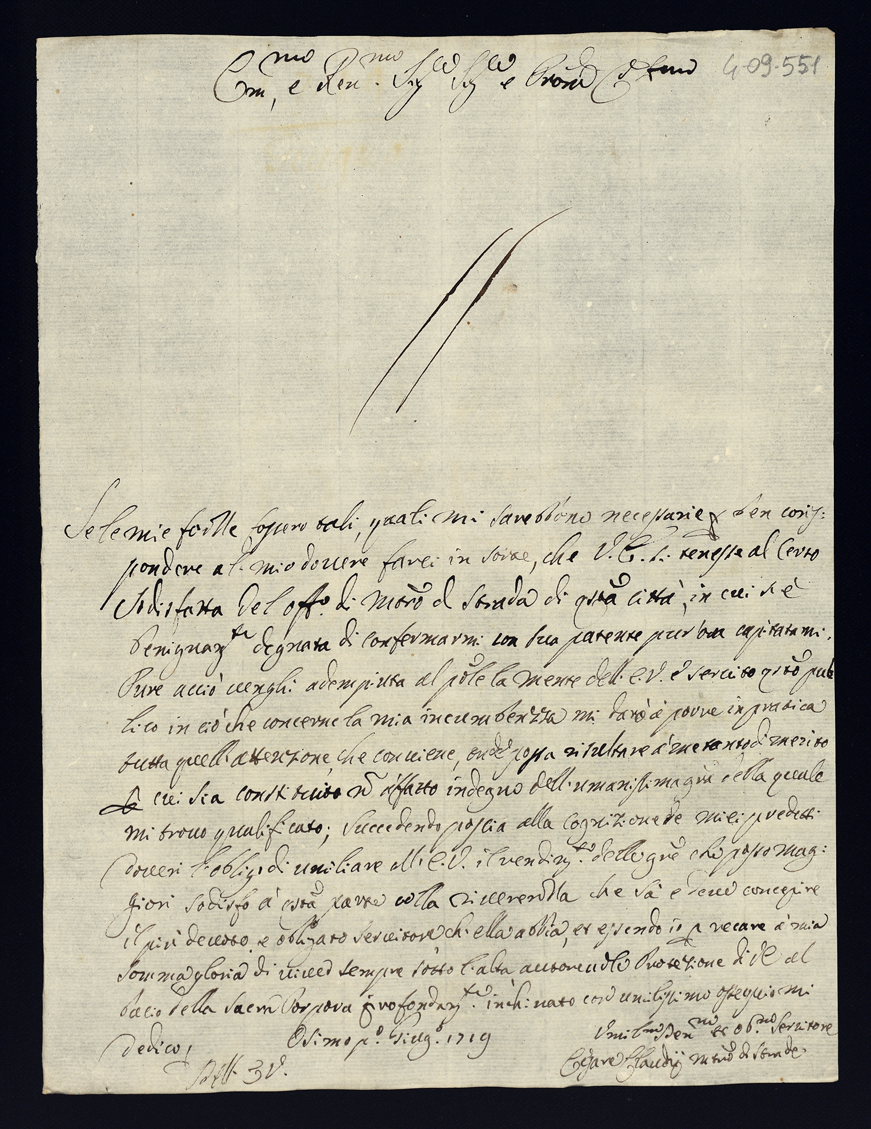 Em.mo, e Rev.mo Sig.re Sig.re e Pron
4-09-551
Se le mie forze fossero tali, quali mi sarebbono necessarie p ben corris:
pondere al mio dovere farei in forse, che V. E. si tenesse al certo
sodisfatta del off.o di Mtro d Strada di qsta città, in cui si è
benignam.te degnata di confermarmi con sua patente pur'ora capitatami.
Pure acciò venghi adempiuta al pole la mente dell'E.V. e servito qsto pub
lico in ciò che concerne la mia incumbenza mi darò à porre in pratica
tutta quell'attenzione, che conviene, onde possa risultare à me tanto di merito
cui sia constituito nō affatto indegno dell'umanissima gra della quale
mi trovo qualificato; succedendo poscia alla cognizione de miei predetti
doveri l'oblig.o di umiliare all'E.V. il rendim.to delle gre che posso mag:
giori sodisfo à qsta parte colla riverenza che sà e deve concepire
il più devoto, e obligato servitore ch'ella abbia, et essendo io p recare à mia
somma gloria di viver sempre sotto l'alta autorevole Protezione di VE al
bacio della Sacra Porpora profondam.te inchinato con umilissimo ossequio mi
dedico,
Osimo p.o Giug.o 1719
Di V. E.
Umil.mo Dev.mo et Ob.mo Servitore
Cesare Claudij Mtro di Strade